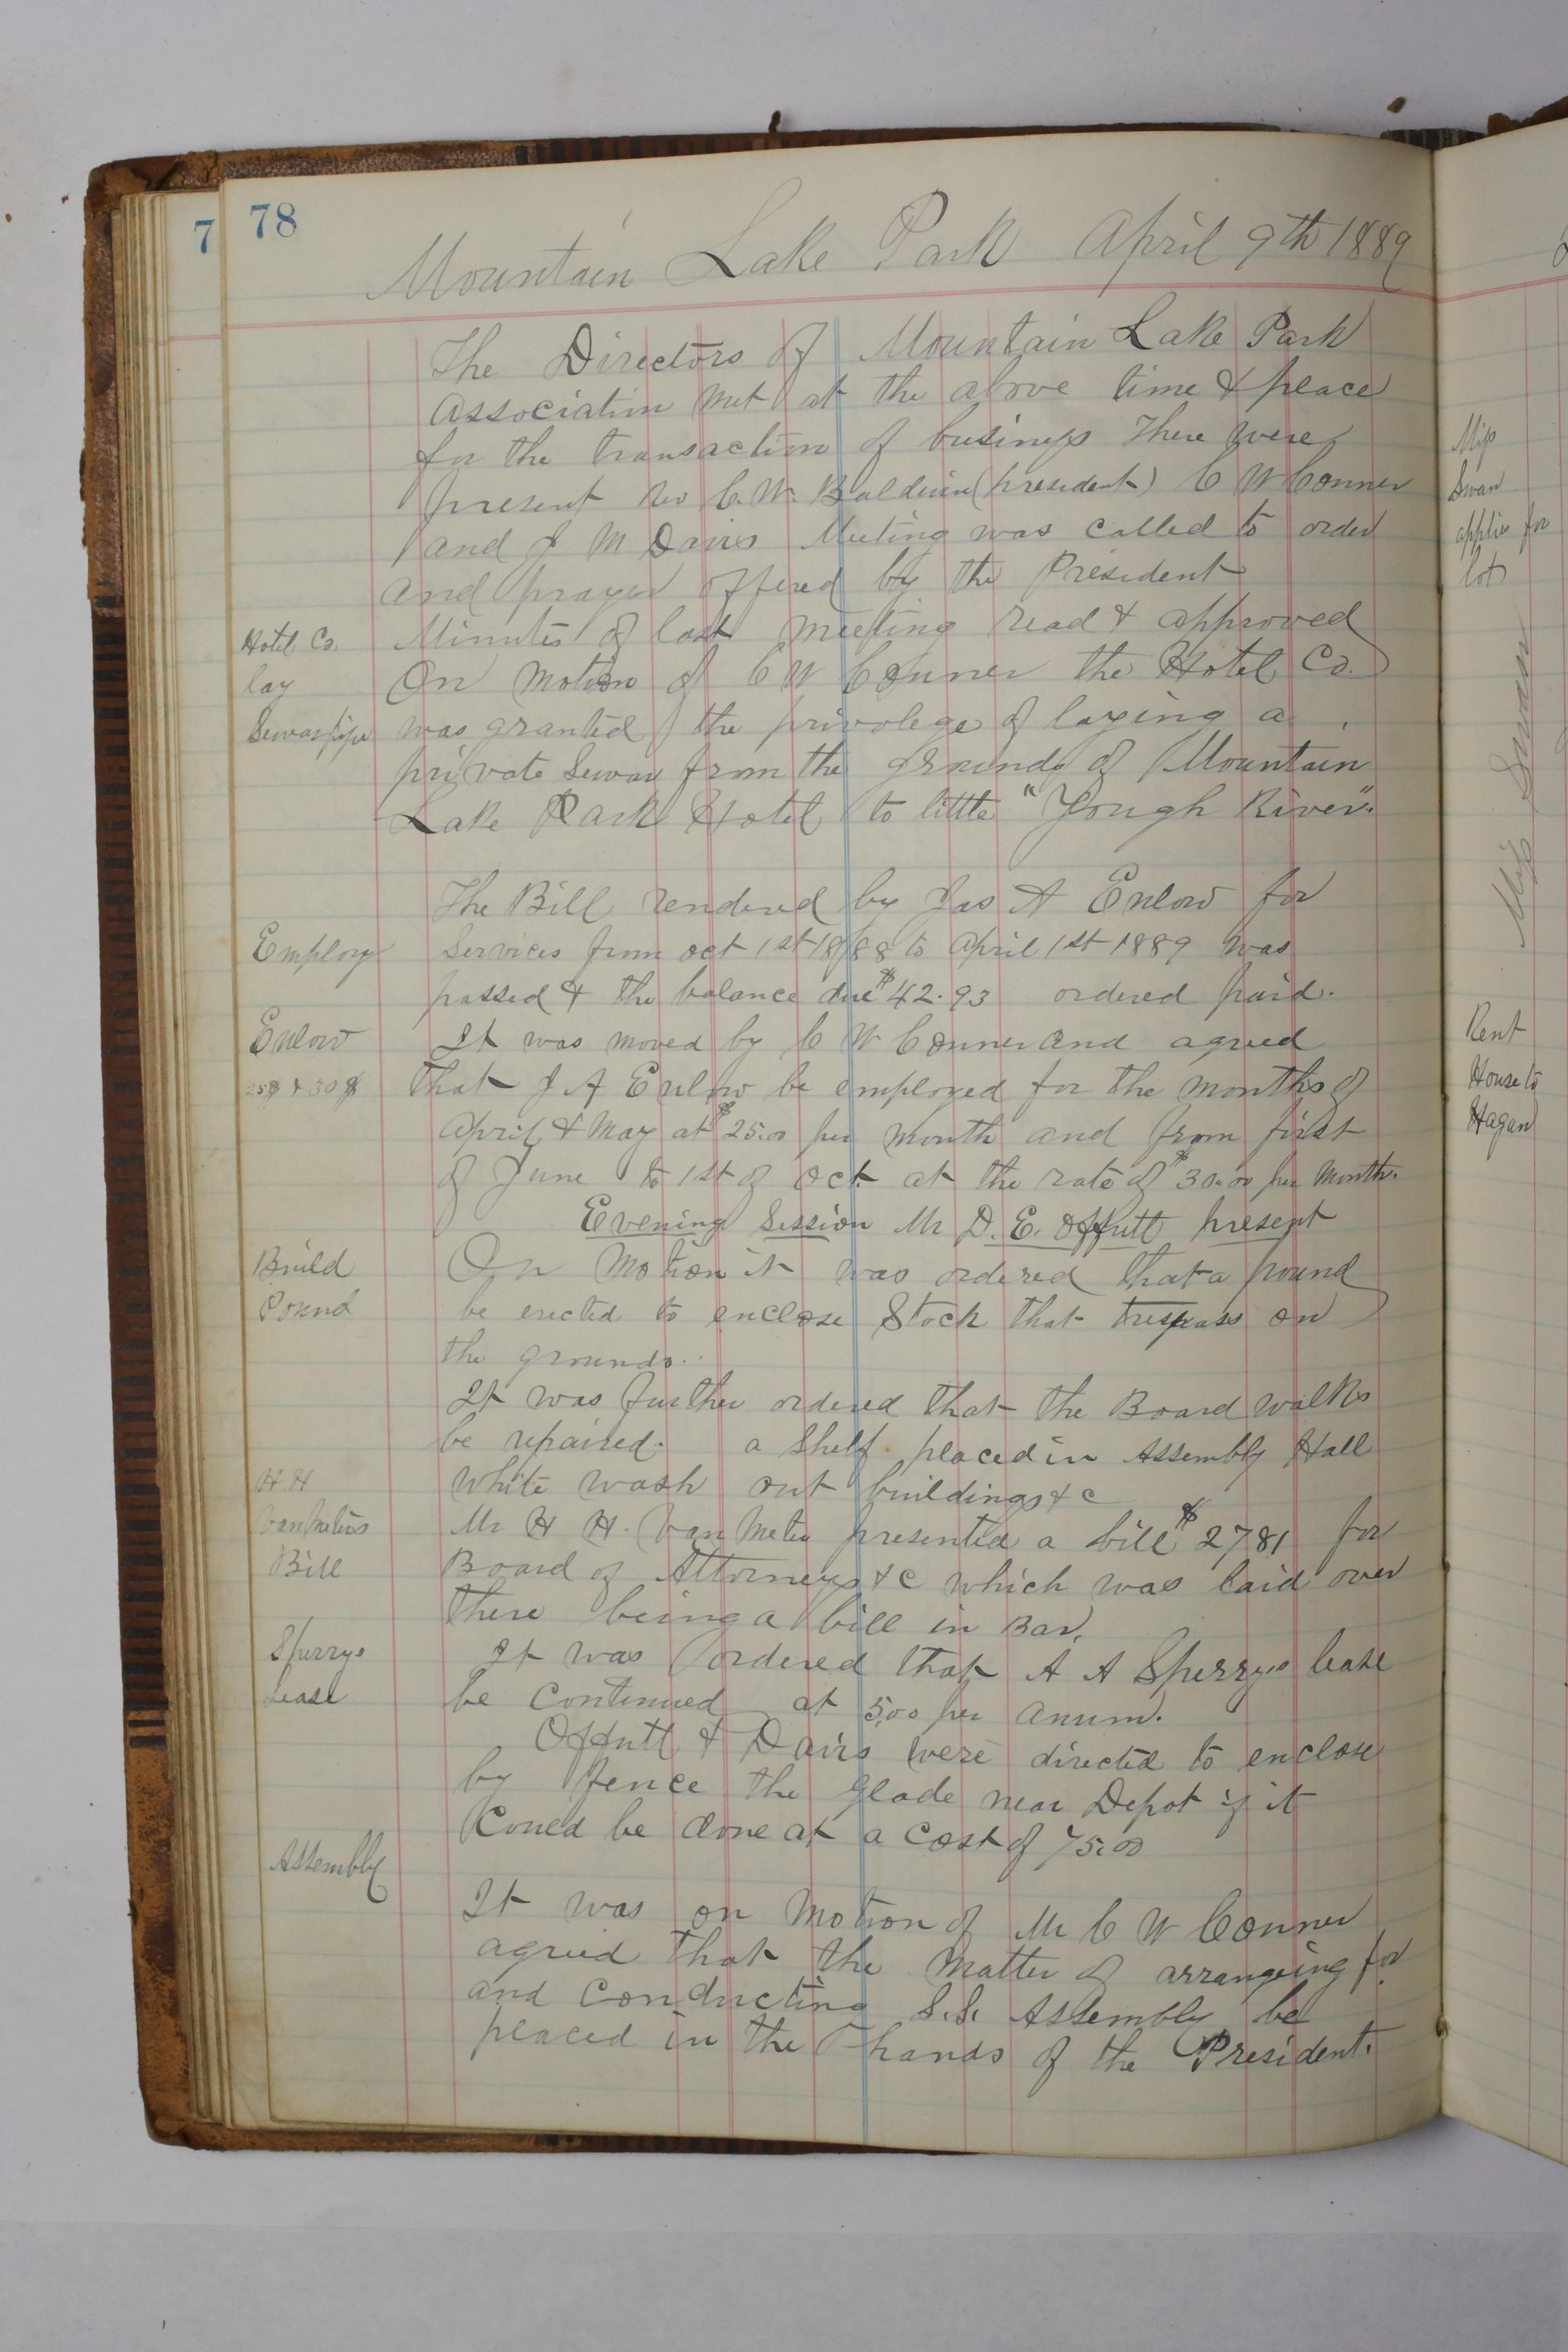 7 78
Mountain Lake Park April 9th 1889
The Directors of Mountain Lake Park
Association met at the above time & place
for the transaction of business There were
present Rev C. W. Baldwin (president) C W Conner
and J M Davis Meeting was called to order
and prayer offered by the President
Hotel Co. Minutes of last meeting read & approved
lay On Motion of C W Conner the Hotel Co.
Sewar pipe was granted the privolege of laying a
private Sewar from the grounds of Mountain
Lake Park Hotel to little "Yough River".
The Bill rendered by Jas A Enlow for
Employ Services from Oct 1st 1888 to April 1st 1889 was
passed & the balance due $42.93 ordered paid.
Enlow It was moved by C W Conner and agreed
25$ & 30$ that J A Enlow be employed for the months of
April & May at $25.00 per month and from first
of June to 1st of Oct. at the rate of $30.00 per Month.
Evening Session Mr D. E. Offutt present
Build On Motion it was ordered that a pound
Pound be erected to enclose Stock that trespass on
the grounds.
It was further ordered that the Board walks
be repaired. a Shelf placed in Assembly Hall
H H white wash out buildings & c
VanMeters Mr H H. Van Meter presented a bill $2781 for
Bill Board of Attorneys & c which was laid over
there being a bill in Bar.
Sperrys It was ordered that A A Sperrys lease
Lease be continued at 5.00 per Anum.
Offutt & Davis were directed to enclose
by fence the Glade near Depot if it
Could be done at a Cost of 75.00
Assembly
It was on Motion of Mr C W Conner
agreed that the Matter of arrangeing for
and Conducting S.S. Assembly be
placed in the hands of the President.
Miss
Swan
applies for
lots
Miss Swan
Rent
House to
Hagan